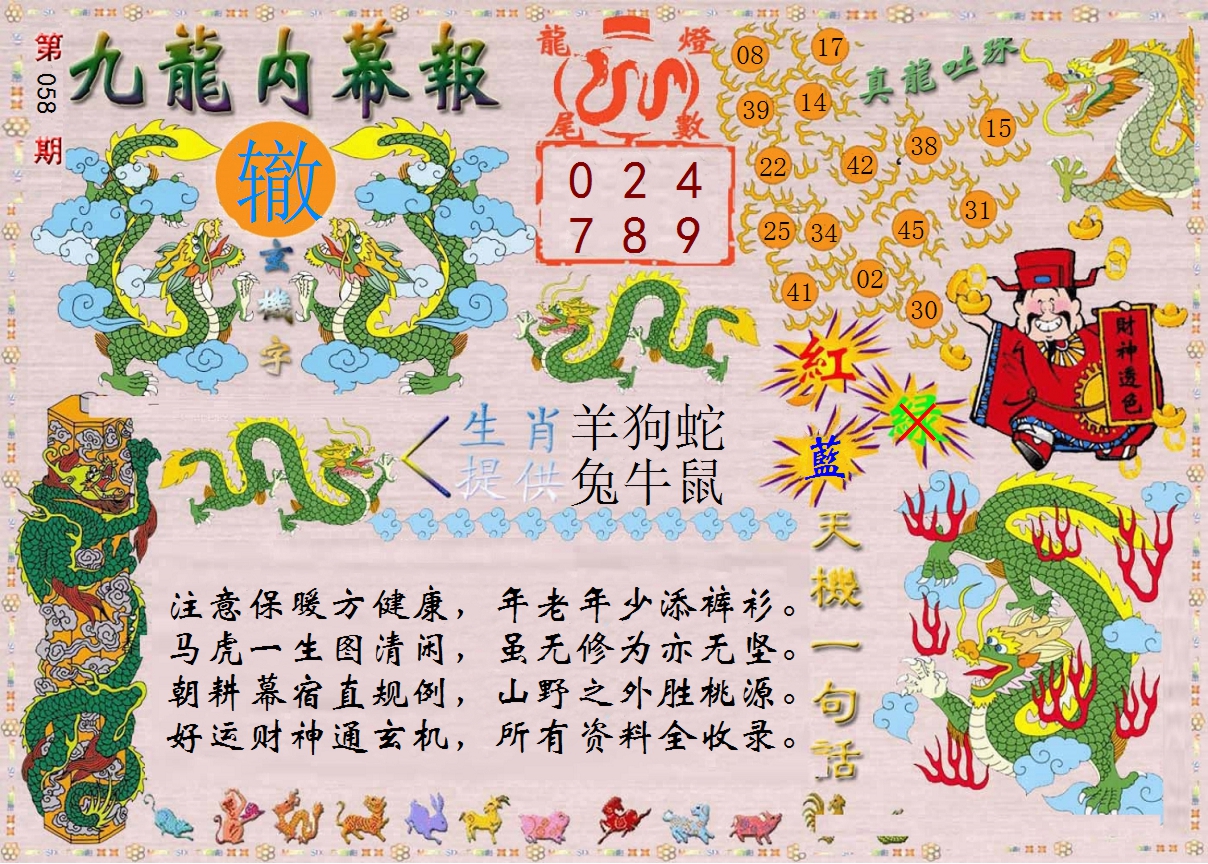 第058期
九龍内幕報
辙
玄機字
龍燈尾數
0 2 4
7 8 9
真龍吐珠
08
17
39
14
15
38
22
42
31
25
34
45
41
02
30
紅
绿
藍
財神透色
生肖提供
羊狗蛇
兔牛鼠
天機一句話
注意保暖方健康，年老年少添裤衫。
马虎一生图清闲，虽无修为亦无坚。
朝耕幕宿直规例，山野之外胜桃源。
好运财神通玄机，所有资料全收录。